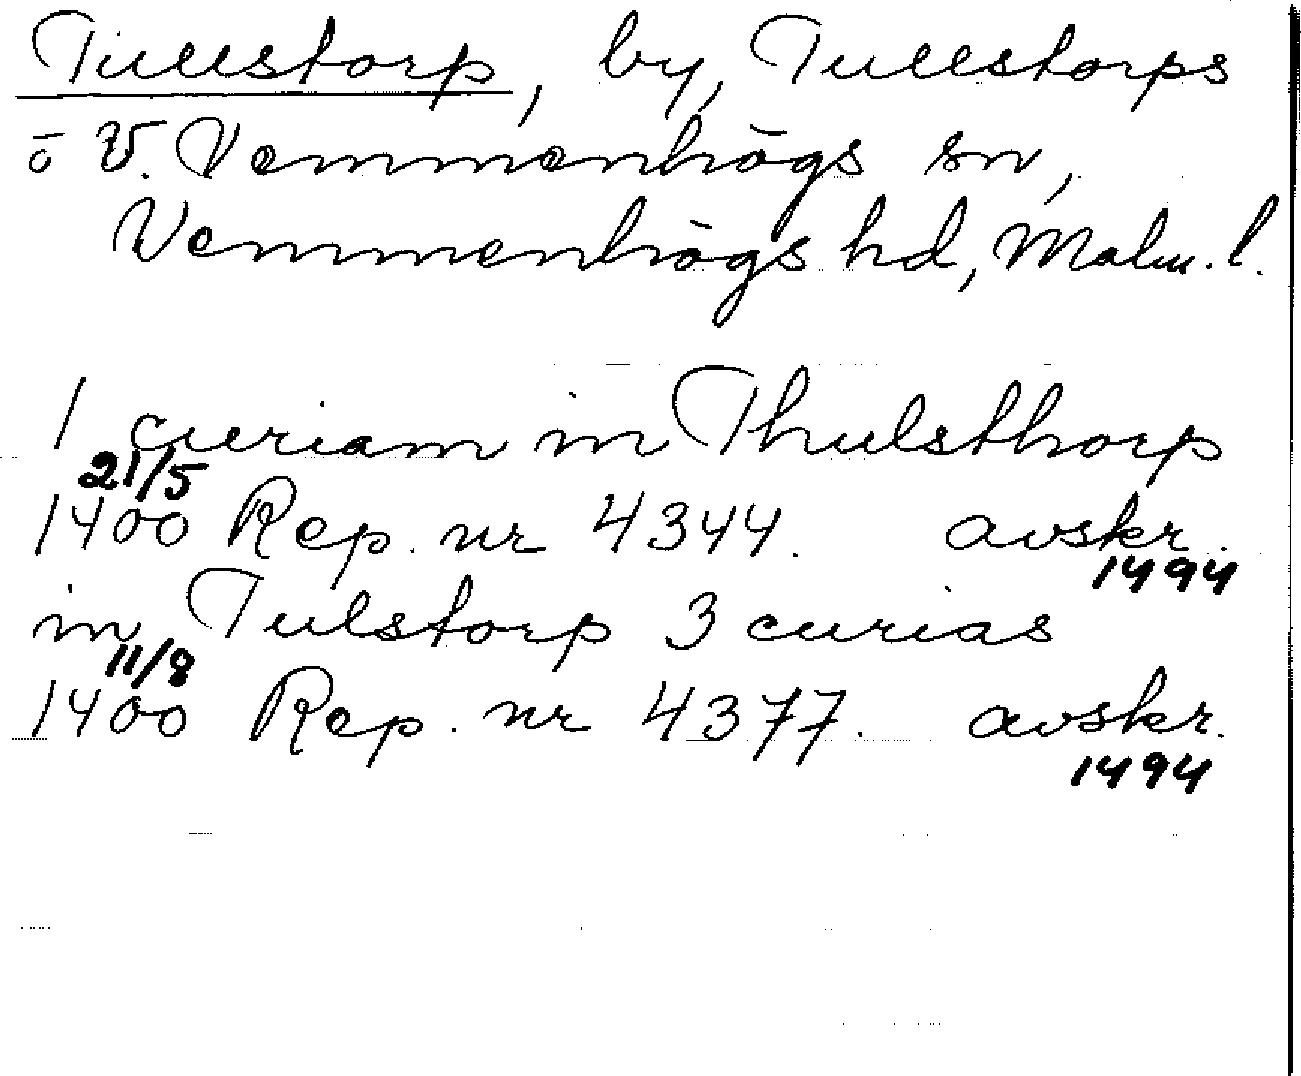 Tullstorp, by, Tullstorps
ö V. Vemmenhögs sn,
Vemmenhögs hd, Malm. l.
1 curiam in Thulsthorp
21/5
1400 Rep. nr 4344. avskr.
1494
in Tulstorp 3 curias
11/8
1400 Rep. nr 4377. avskr.
1494